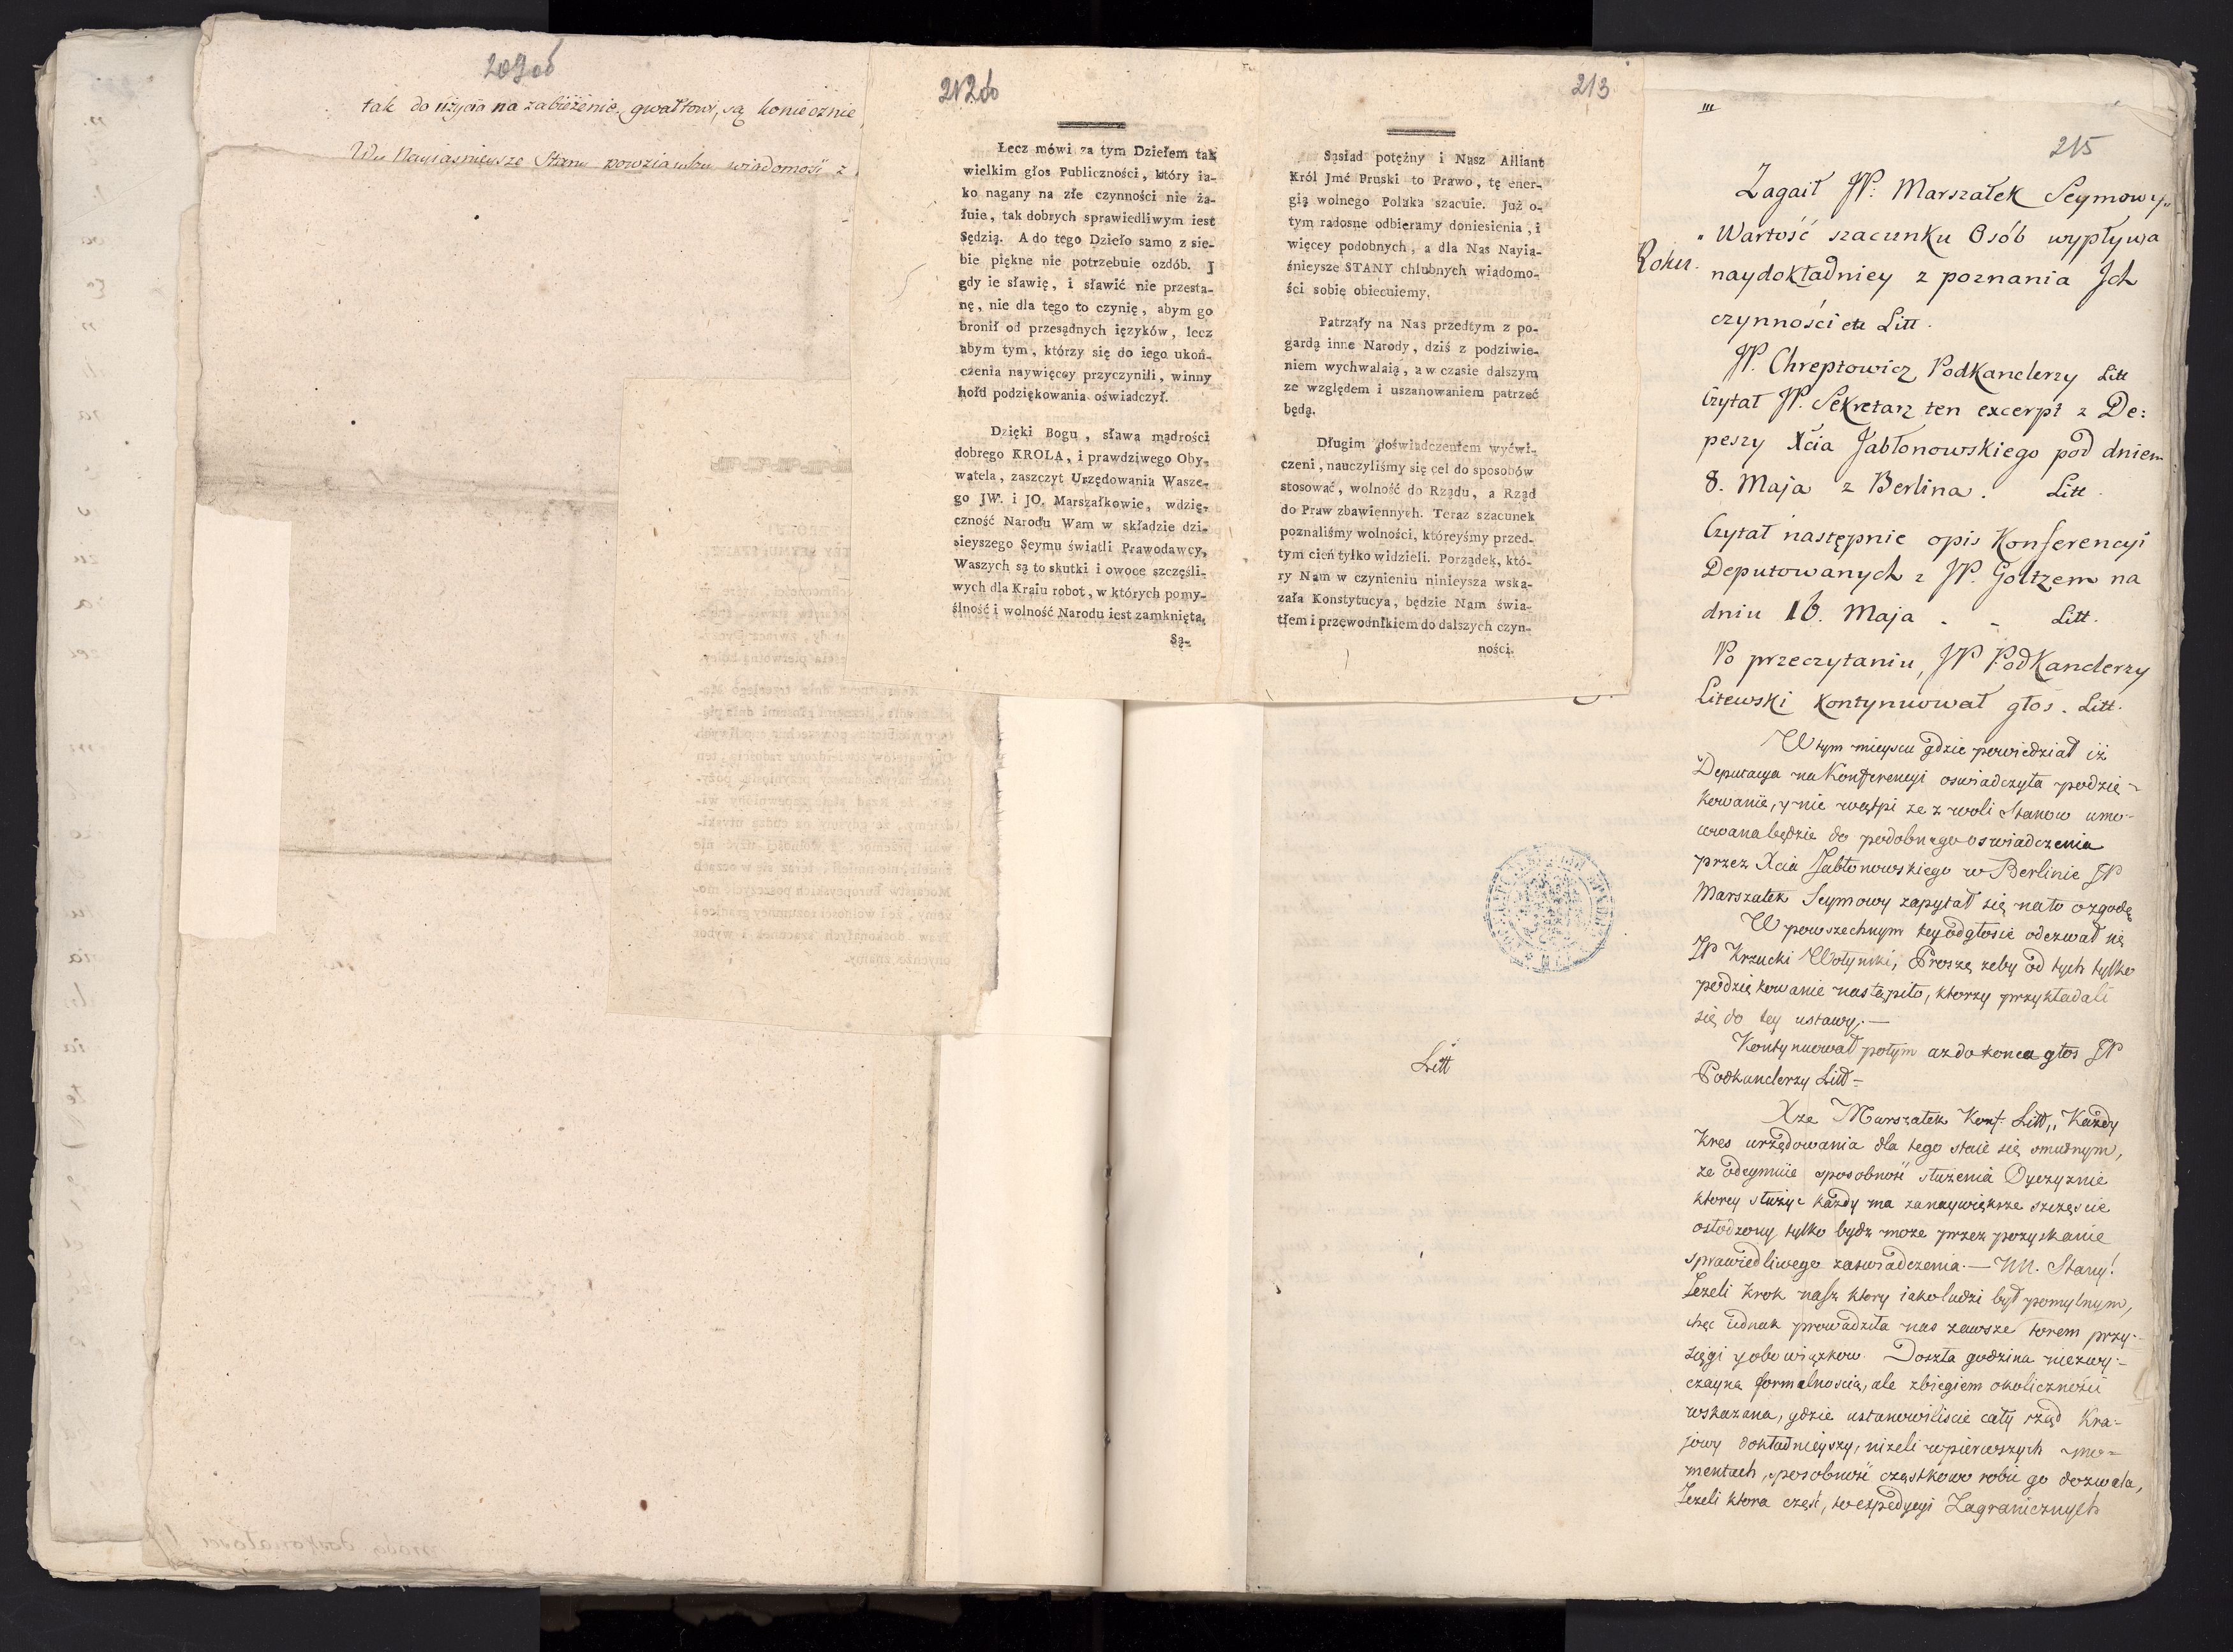 209ob
tak do użycia na zabieżenie gwałtowi, są koniecznie
Wy Nayiaśnieysze Stany powziąwszy wiadomość
212ob
Lecz mówi za tym Dziełem tak
wielkim głos Publiczności, który ia-
ko nagany na złe czynności nie ża-
łuie, tak dobrych sprawiedliwym iest
Sędzią. A do tego Dzieło samo z sie-
bie piękne nie potrzebuie ozdób. J
gdy ie sławię, i sławić nie przesta-
nę, nie dla tego to czynię, abym go
bronił od przesądnych ięzyków, lecz
abym tym, którzy się do iego ukoń-
czenia naywięcey przyczynili, winny
hołd podziękowania oświadczył.
Dzięki Bogu, sława mądrości
dobrego KROLA, i prawdziwego Oby-
watela, zaszczyt Urzędowania Wasze-
go JW. i JO. Marszałkowie, wdzię-
czność Narodu Wam w składzie dzi-
sieyszego Seymu światli Prawodawcy,
Waszych są to skutki i owoce szczęśli-
wych dla Kraiu robot, w których pomy-
ślność i wolność Narodu iest zamknięta.
Są-
213
Sąsiad potężny i Nasz Alliant
Król Jmć Pruski to Prawo, tę ener-
gią wolnego Polaka szacuie. Już o-
tym radosne odbieramy doniesienia, i
więcey podobnych, a dla Nas Nayia-
śnieysze STANY chlubnych wiadomo-
ści sobie obiecuiemy.
Patrzały na Nas przedtym z po-
gardą inne Narody, dziś z podziwie-
niem wychwalaią, a w czasie dalszym
ze względem i uszanowaniem patrzeć
będą.
Długim doświadczeniem wyćwi-
czeni, nauczyliśmy się cel do sposobów
stosować, wolność do Rządu, a Rząd
do Praw zbawiennych. Teraz szacunek
poznaliśmy wolności, któreyśmy przed-
tym cień tylko widzieli. Porządek, któ-
ry Nam w czynieniu ninieysza wska-
zała Konstytucya, będzie Nam świa-
tłem i przewodnikiem do dalszych czyn-
ności.
Litt
III
215
Zagaił JP. Marszałek Seymowy „
„ Wartość szacunku Osób wypływa
naydokładniey z poznania Jch
czynności etc Litt.
JP. Chreptowicz PodKanclerzy Litt
Czytał JP. Sekretarz ten excerpt z De:
peszy Xcia Jabłonowskiego pod dniem
8. Maja z Berlina. Litt.
Czytał następnie opis Konferencyi
Deputowanych z JP. Goltzem na
dniu 16. Maja - - Litt.
Po przeczytaniu, JP PodKanclerzy
Litewski kontynuował głos. Litt.
W tym mieyscu gdzie powiedział iż
Deputacya na Konferencyi oswiadczyła podzię-
kowanie, y nie wątpi ze z woli Stanow umo-
cowana będzie do podobnego oswiadczenia
przez Xcia Jabłonowskiego w Berlinie JP
Marszałek Seymowy zapytał się na to o zgodę
W powszechnym tey odgłosie odezwał się
JP Krzucki Wołyński, Proszę zeby od tych tylko
podziękowanie nastąpiło, ktorzy przykładali
się do tey ustawy. —
Kontynuował potym az do konca głos JP
Podkanclerzy Litt -
Xze Marszałek Konf: Litt „ Kazdy
Kres urzędowania dla tego staie się smutnym,
ze odeymuie sposobność służenia Oyczyznie
ktorey służyc kazdy ma za naywiększe szczęscie
osłodzony tylko bydz moze przez pozyskanie
sprawiedliwego zaswiadczenia. — NN. Stany!
Jezeli krok nasz ktory iako ludzi był pomylnym,
chęc iednak prowadziła nas zawsze torem przy-
sięgi y obowiązkow. Doszła godzina niezwy-
czayną formalnoscią, ale zbiegiem okoliczności
wskazana, gdzie ustanowiliscie cały rząd Kra-
jowy dokładnieyszy, nizeli w pierwszych mo-
mentach, sposobność cząstkowo robic go dozwala,
Jezeli ktora częsc, to expedycyi Zagranicznych